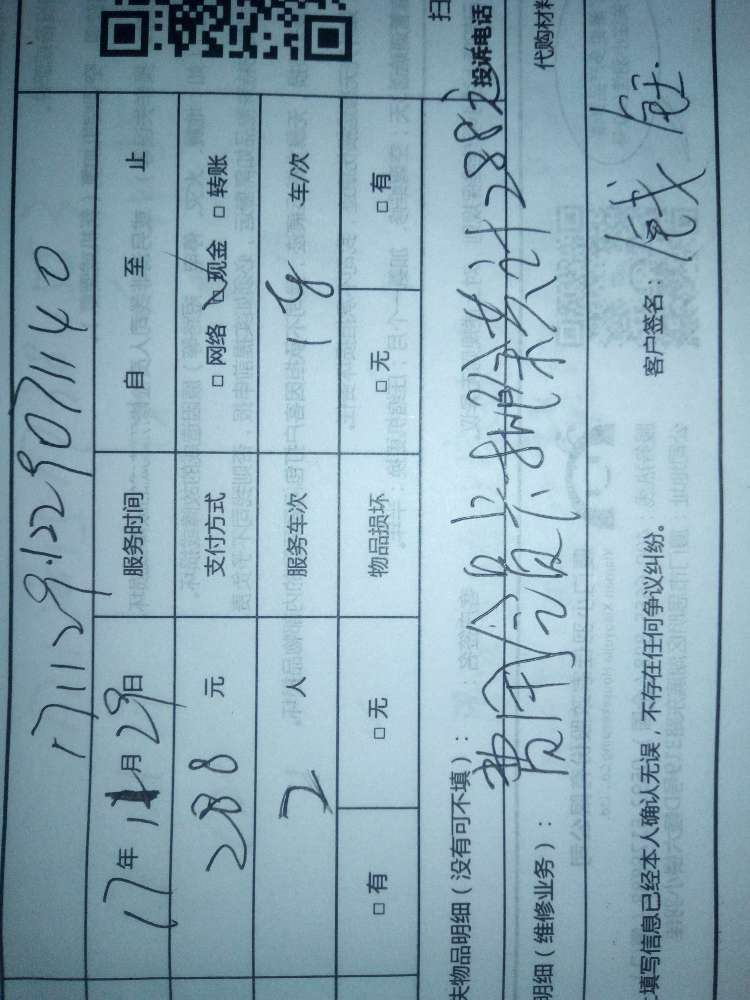 1711291229071140
17年11月29日 服务时间 自 至 止
288元 支付方式 □网络 □现金 □转账
2人 服务车次 1 车/次
□有 □无 物品损坏 □无 □有
夫物品明细（没有可不填）：
费用会员卡 共计288元
投诉电话
明细（维修业务）：
代购材料
填写信息已经本人确认无误，不存在任何争议纠纷。 客户签名：
扫